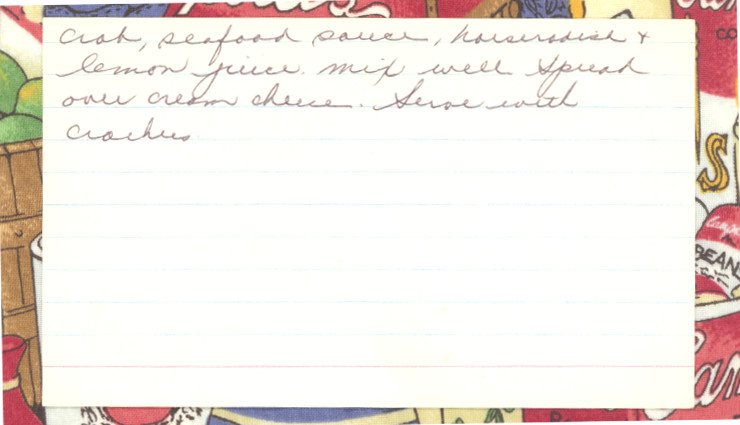 crab, seafood sauce, horseradish +
lemon juice. mix well spread
over cream cheese. Serve with
crackers
S
BEANS